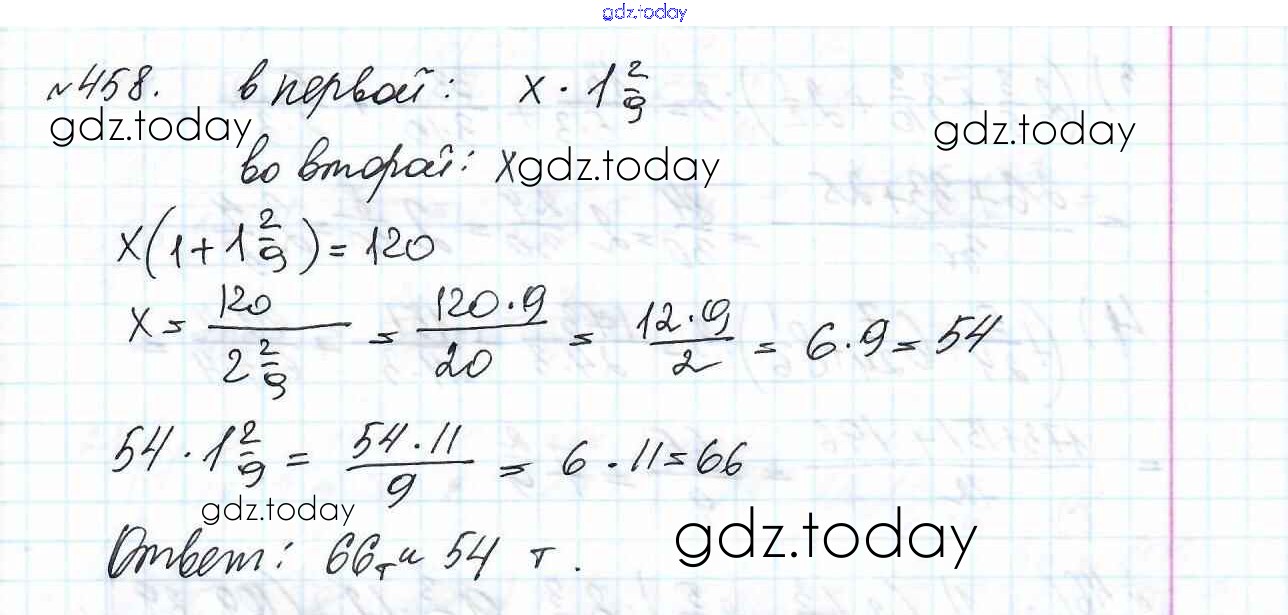 gdz.today
№458. в первой: x · 1 2/9
gdz.today gdz.today
во второй: x gdz.today
x(1 + 1 2/9) = 120
x = 120 / 2 2/9 = 120·9 / 20 = 12·9 / 2 = 6·9 = 54
54 · 1 2/9 = 54·11 / 9 = 6 · 11 = 66
gdz.today
Ответ: 66 т и 54 т.
gdz.today